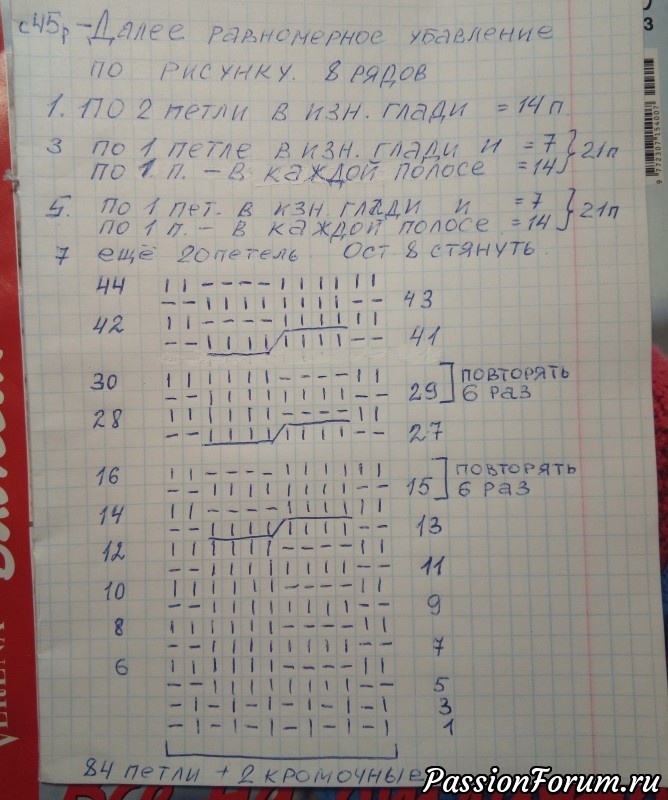 с45р-Далее равномерное убавление
по рисунку. 8 рядов
1. по 2 петли в изн. глади = 14 п
3 по 1 петле в изн. глади и = 7 } 21 п
по 1 п. - в каждой полосе = 14
5. по 1 пет. в изн глади и = 7 } 21 п
по 1 п. - в каждой полосе = 14
7 ещё 20 петель Ост 8 стянуть
44
43
42
41
30
29 повторять
6 раз
28
27
16
15 повторять
6 раз
14
13
12
11
10
9
8
7
6
5
3
1
84 петли + 2 кромочные
PassionForum.ru
VERENA
9 772307 154007
3